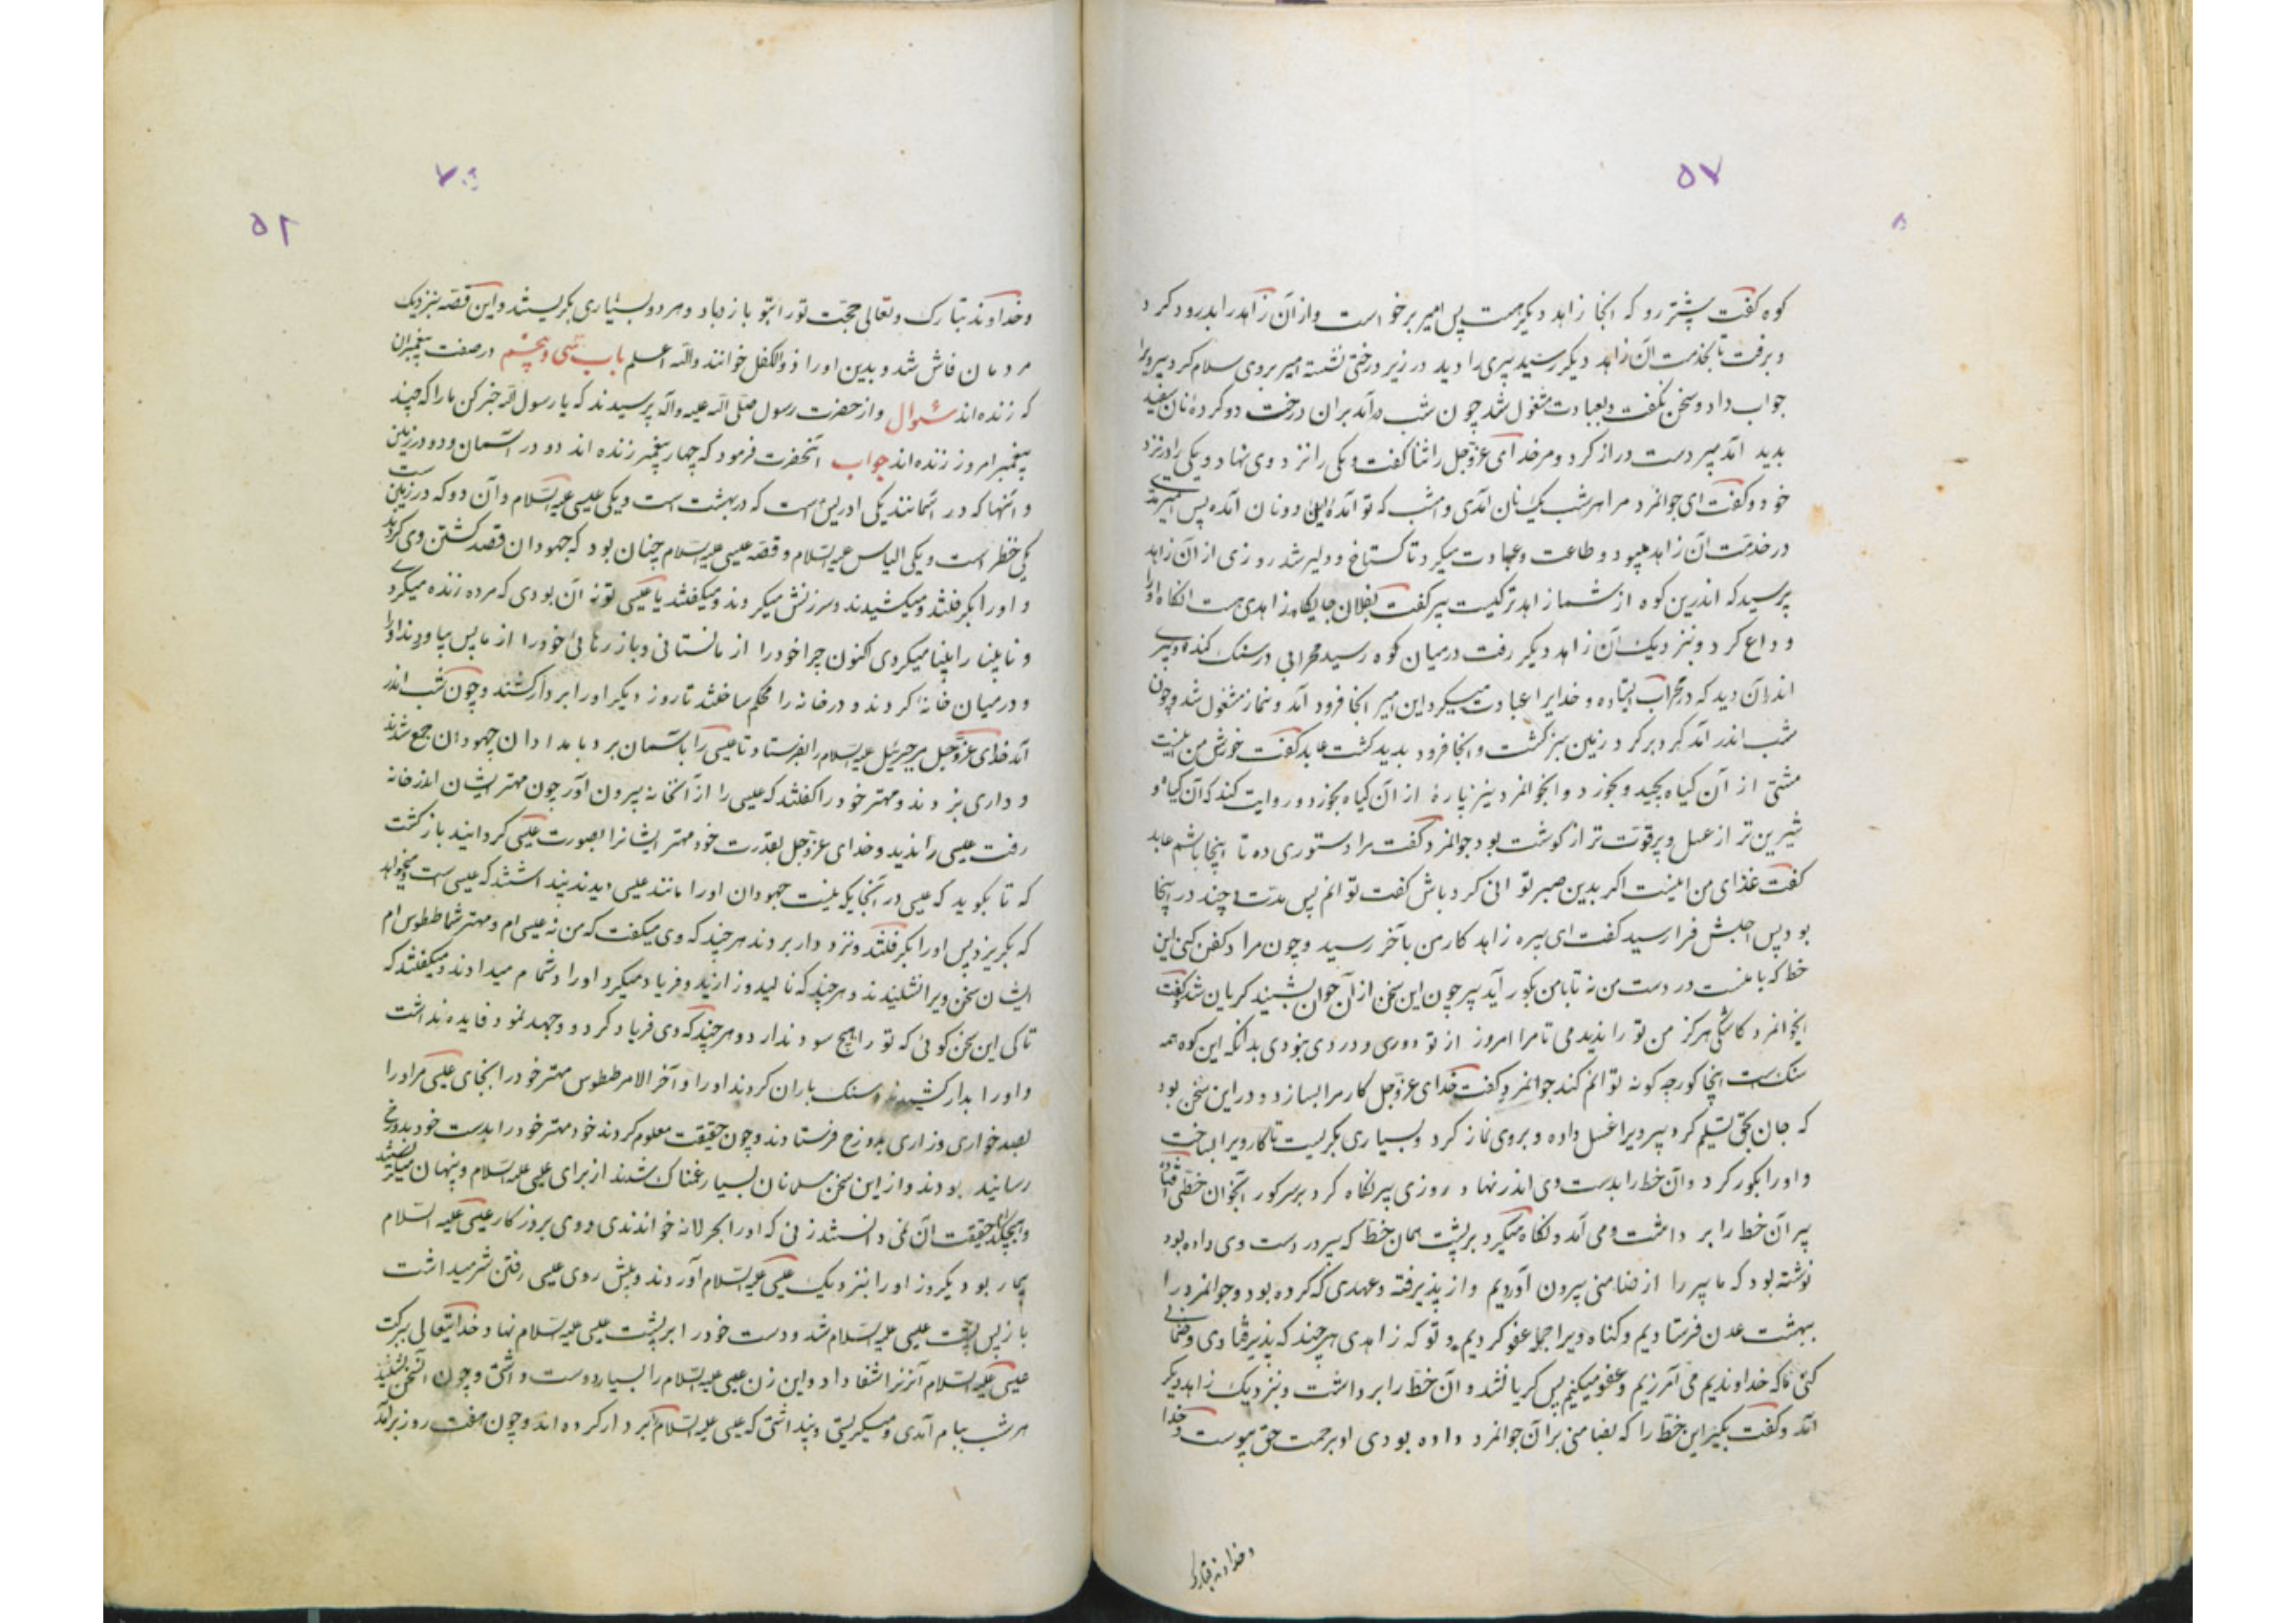 ۵۷
کوه کفت پیشتر رو که انجا زاهد دیکر هست پس امیر برخواست و از آن زاهد را بدرود کرد
و برفت تا بخدمت آن زاهد دیکر رسید پیری را دید در زیر درختی نشسته امیر بروی سلام کرد پیر ویرا
جواب داد و سخن نکفت و بعبادت مشغول شد چون شب درآمد بران درخت دو کرده نان سفید
بدید آمد پیر دست دراز کرد و مر خدای عزوجل را ثنا کفت و یکی را نزد وی نهاد و یکی را در نزد
خود و کفت ای جوانمرد مرا هر شب یک نان آمدی و امشب که تو آمدۀ اینک دو نان آمده پس امیر مدتی
در خدمت آن زاهد میبود و طاعت و عبادت میکرد تا کستاخ و دلیر شد روزی از آن زاهد
پرسید که اندرین کوه از شما زاهدتر کیست پیر کفت بفلان جایکاه زاهدی هست انکاه او را
وداع کرد و بنزدیک آن زاهد دیکر رفت در میان کوه رسید محرابی در سنک کنده و پیری
اندران دید که در محراب ایستاده و خدایرا عبادت میکرد این امیر انجا فرود آمد و بنماز مشغول شد و چون
شب اندر آمد کرد بر کرد زمین سبز کشت و انجا فرود بدید کشت عابد کفت خورش من اینست
مشتی از آن کیاه بچید و بخورد و انجوانمرد نیز پارۀ از آن کیاه بخورد و روایت کند که آن کیاه
شیرین تر از عسل و پرقوت تر از کوشت بود جوانمرد کفت مرا دستوری ده تا اینجا باشم عابد
کفت غذای من اینست اکر بدین صبر توانی کرد باش کفت توانم پس مدت چند در اینجا
بود پس اجلش فرا رسید کفت ای پیره زاهد کار من بآخر رسید و چون مرا دکفن کنی این
خط که با منست در دست من نه تا با من بکور آید پیر چون این سخن از آن جوان بشنید کریان شد کفت
ایجوانمرد کاشکی هرکز من تو را ندیدمی تا مرا امروز از تو دوری و دردی نبودی بدانکه این کوه همه
سنکست اینجا کور چه کونه توانم کند جوانمرد کفت خدای عزوجل کار مرا بسازد و در این سخن بود
که جان بحق تسلیم کرد پیر ویرا غسل داده و بروی نماز کرد و بسیاری بکریست تا کار ویرا بساخت
و او را بکور کرد و آن خط را بدست وی اندر نهاد روزی پیر نکاه کرد بر سر کور انجوان خطی افتاده
پیر آن خط را برداشت و می آمد و نکاه میکرد بر پشت همان خط که پیر در دست وی داده بود
نوشته بود که ما پیر را از ضامنی بیرون آوردیم و از پذیرفته و عهدی که کرده بود و جوانمرد را
ببهشت عدن فرستادیم و کناه ویرا جمله عفو کردیم و تو که زاهدی هر چند که پذیرفتادی و ضمانی
کنی ما که خداوندیم می آمرزیم و عفو میکنیم پس کریان شد و آن خط را برداشت و بنزدیک زاهد دیکر
آمد و کفت بکیر این خط را که بضامنی بر آن جوانمرد داده بودی او برحمت حق پیوست و خدا
و خداوند تبارک
۵۲
و خداوند تبارک و تعالی حجت تو را بتو باز داد و هر دو بسیاری بکریستند و این قصه بنزدیک
مردمان فاش شد و بدین او را ذوالکفل خوانند والله اعلم باب سی و پنجم در صفت پیغمبران
که زنده اند سئوال و از حضرت رسول صلی الله علیه و آله پرسیدند که یا رسول الله خبر کن ما را که چند
پیغمبر امروز زنده اند جواب آنحضرت فرمود که چهار پیغمبر زنده اند دو در آسمان و دو در زمین
و آنها که در آسمانند یکی ادریس است که در بهشت است و یکی عیسی علیه السلام و آن دو که در زمین است
یکی خضر است و یکی الیاس علیه السلام و قصه عیسی علیه السلام چنان بود که جهودان قصد کشتن وی کردند
و او را بکرفتند و میکشیدند و سرزنش میکردند و میکفتند یا عیسی تو نه آن بودی که مرده زنده میکردی
و نابینا را بینا میکردی اکنون چرا خود را از ما نستانی و باز رهانی خود را از ما پس بیاوردند او را
و در میان خانۀ کردند و در خانه را محکم ساختند تا روز دیکر او را بر دار کشند و چون شب اندر
آمد خدای عزوجل مر جبرئیل علیه السلام را بفرستاد تا عیسی را باسمان برد بامدادان جهودان جمع شدند
و داری بزدند و مهتر خود را کفتند که عیسی را از آنخانه بیرون آور چون مهتر ایشان اندر خانه
رفت عیسی را ندید و خدای عزوجل بقدرت خود مهتر ایشانرا بصورت عیسی کردانید باز کشت
که تا بکوید که عیسی در آنجایکه نیست جهودان او را مانند عیسی دیدند پنداشتند که عیسی است و میخواهد
که بکریزد پس او را بکرفتند و نزد دار بردند هر چند که وی میکفت که من نه عیسی ام و مهتر شما ططوس ام
ایشان سخن ویرا نشنیدند و هر چند که نالید و زارید و فریاد میکرد او را دشنام میدادند و میکفتند که
تا کی این سخن کوئی که تو را هیچ سود ندارد و هر چند که وی فریاد کرد و جهد نمود فایده نداشت
و او را بدار کشیدند و سنک باران کردند او را و آخر الامر ططوس مهتر خود را بجای عیسی مر او را
بصد خواری و زاری بدوزخ فرستادند و چون حقیقت معلوم کردند خود مهتر خود را بدست خود بدوزخ
رسانیده بودند و از این سخن مسلمانان بسیار غمناک شدند از برای عیسی علیه السلام و پنهان میکشتند
و هیچکدام حقیقت آن نمی دانستند زنی که او را بحرلانه خواندندی و وی بروزکار عیسی علیه السلام
بیمار بود یکروز او را بنزدیک عیسی علیه السلام آوردند و پیش روی عیسی رفتن شرم میداشت
باز پس پشت عیسی علیه السلام شد و دست خود را بر پشت عیسی علیه السلام نهاد خدایتعالی ببرکت
عیسی علیه السلام آنزنرا شفا داد و این زن عیسی علیه السلام را بسیار دوست داشتی و چون آنسخن بشنید
هر شب ببام آمدی و میکریستی و پنداشتی که عیسی علیه السلام را بر دار کرده اند و چون هفت روز برآمد